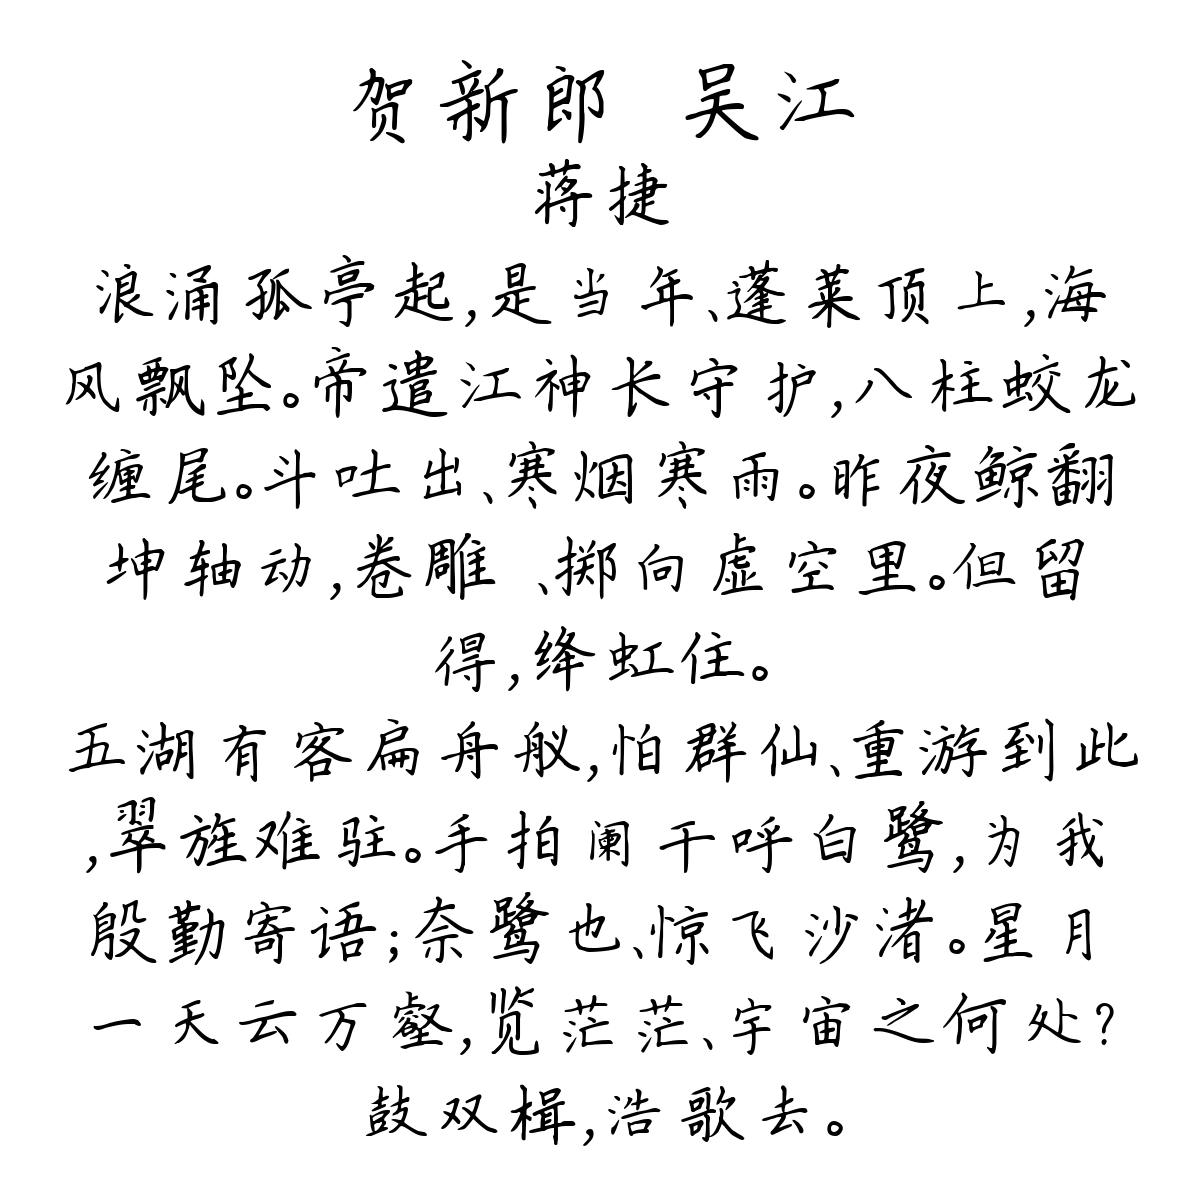 贺新郎 吴江
蒋捷
浪涌孤亭起,是当年、蓬莱顶上,海
风飘坠。帝遣江神长守护,八柱蛟龙
缠尾。斗吐出、寒烟寒雨。昨夜鲸翻
坤轴动,卷雕 、掷向虚空里。但留
得,绛虹住。
五湖有客扁舟舣,怕群仙、重游到此
,翠旌难驻。手拍阑干呼白鹭,为我
殷勤寄语;奈鹭也、惊飞沙渚。星月
一天云万壑,览茫茫、宇宙之何处?
鼓双楫,浩歌去。